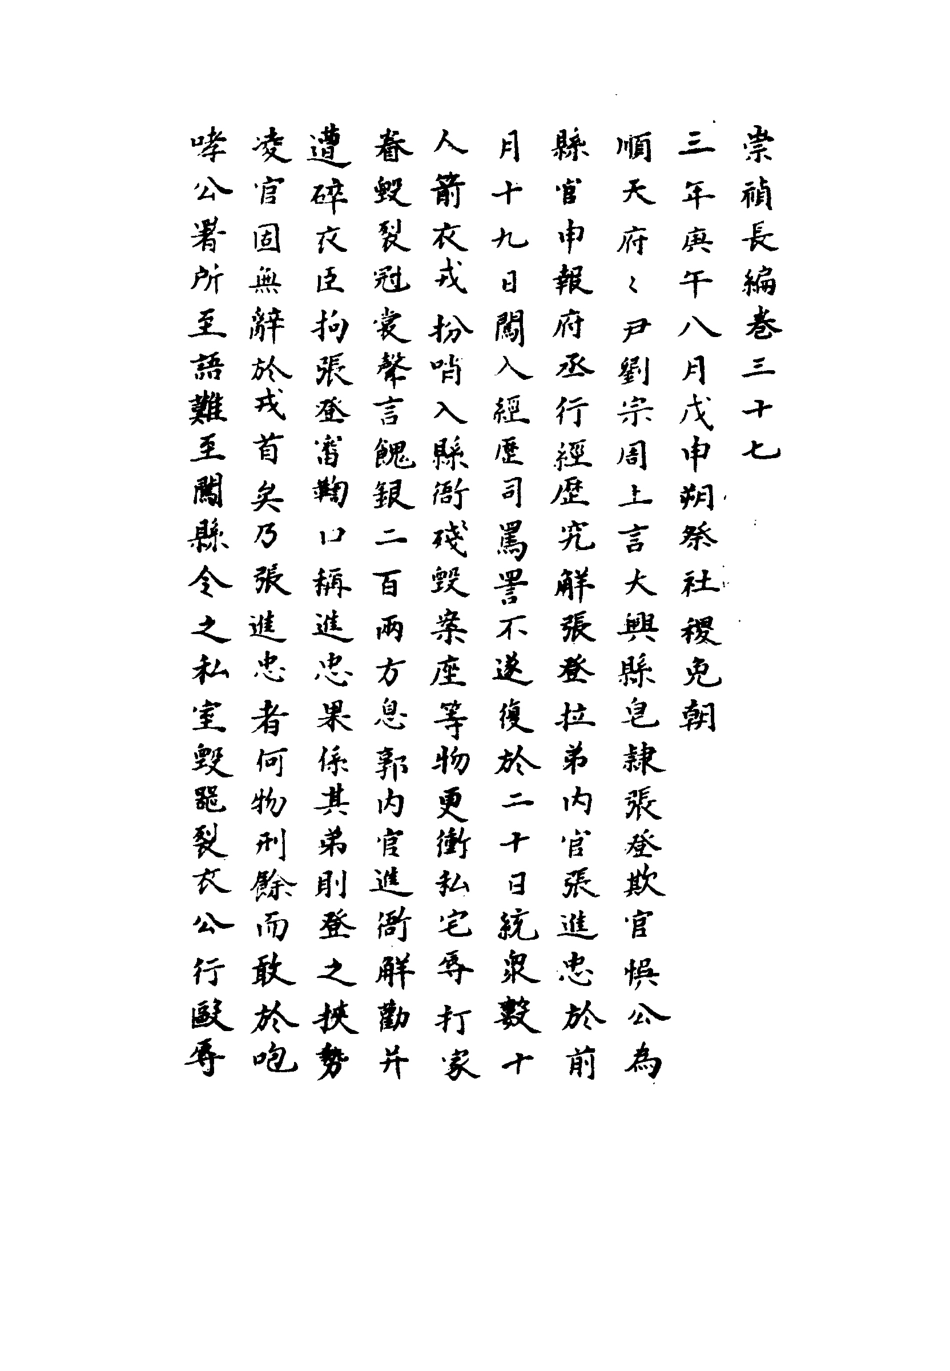 崇禎長編卷三十七
三年庚午八月戊申朔祭社稷免朝
順天府〻尹劉宗周上言大興縣皂隸張登欺官悞公為
縣官申報府丞行經歷究解張登拉弟内官張進忠於前
月十九日闖入經歷司罵詈不遂復於二十日統衆數十
人箭衣戎扮哨入縣衙殘毀案座等物更衝私宅辱打家
眷毀裂冠裳聲言餽銀二百兩方息郭内官進衙解勸并
遭碎衣臣拘張登審鞫口稱進忠果係其弟則登之挾勢
凌官固無辭於戎首矣乃張進忠者何物刑餘而敢於咆
哮公署所至語難至闖縣令之私室毀噐裂衣公行毆辱